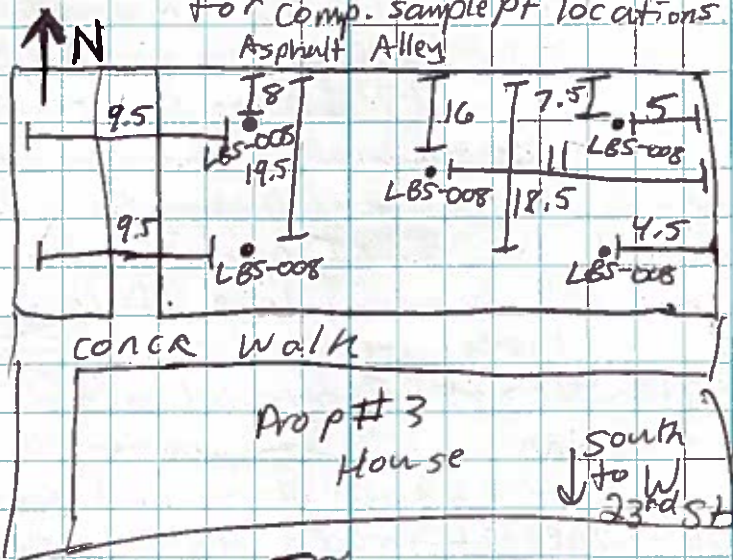 for comp. sample pt locations
N
Asphalt Alley
9.5
8
16
7.5
5
LBS-008
LBS-008
19.5
11
LBS-008
18.5
9.5
4.5
LBS-008
LBS-008
concr walk
Prop #3
House
South
to W
23rd St